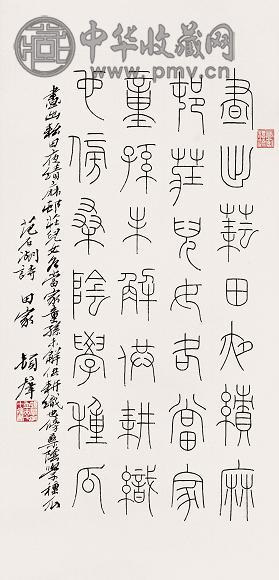 中华收藏网
www.pmv.cn
晝出耘田夜績麻
邨莊兒女各當家
童孫未解供耕織
也傍桑陰學種瓜
晝出耘田夜績麻邨莊兒女各當家童孫未解供耕織也傍桑陰學種瓜
范石湖詩 田家